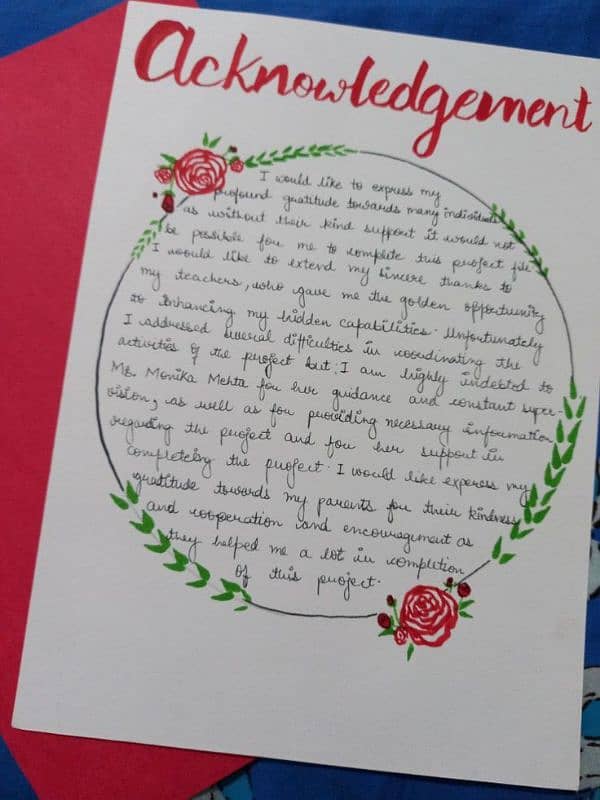 Acknowledgement
I would like to express my
profound gratitude towards many individuals
as without their kind support it would not
be possible for me to complete this project file
I would like to extend my sincere thanks to
my teachers, who gave me the golden opportunity
to enhancing my hidden capabilities. Unfortunately
I addressed several difficulties in coordinating the
activities of the project but; I am highly indebted to
Ms. Monika Mehta for her guidance and constant super-
vision, as well as for providing necessary information
regarding the project and for her support in
completeing the project. I would like express my
gratitude towards my parents for their kindness
and cooperation and encouragement as
they helped me a lot in completion
of this project.